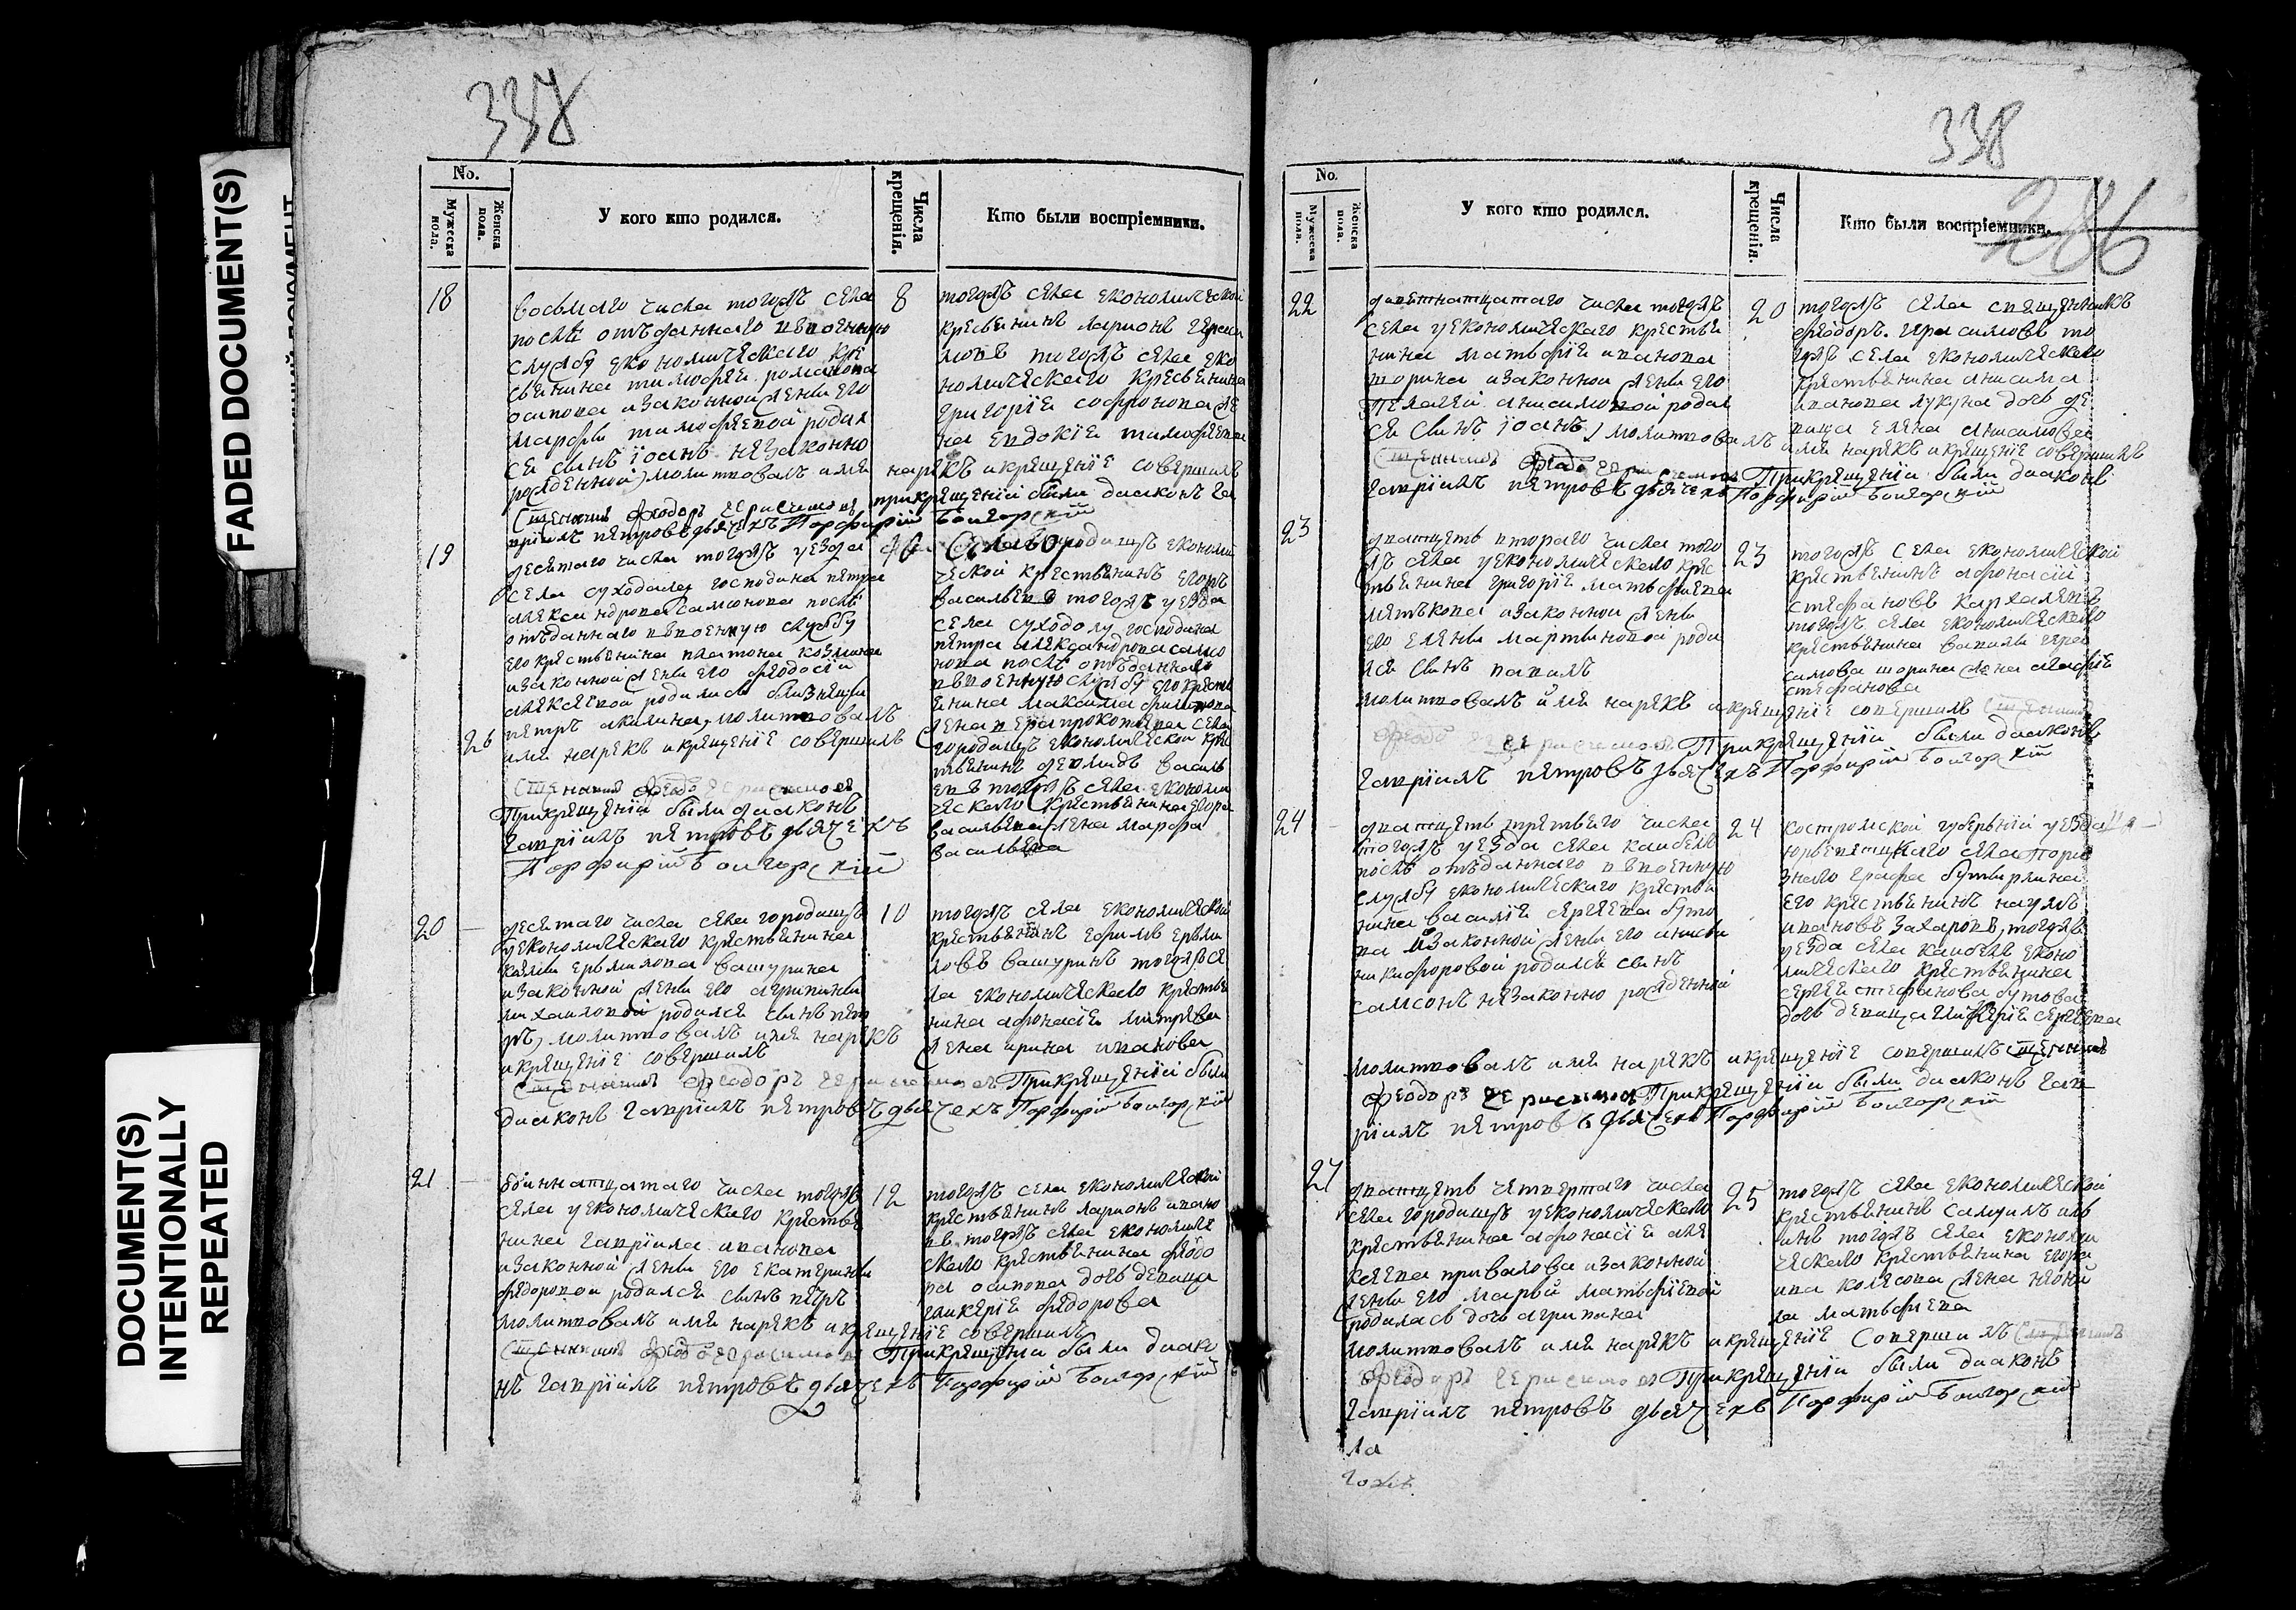 FADED DOCUMENT(S)
DOCUMENT(S)
INTENTIONALLY
REPEATED
338
No.
Мужеска пола.
Женска пола.
У кого кто родился.
Числа крещенія.
Кто были воспріемники.
18
восьмаго числа тогожъ села
послѣ отъданнаго ввоенную
службу економическаго кре
стьянина тимофея романова
осипова изаконной жены его
марфы тимофеевой родил
ся сынъ іоанъ незаконно
рожденной) молитвовалъ имя нарекъ икрещеніе совершилъ
Священникъ Феодоръ Герасимовъ прикрещеніи были диаконъ га
вріилъ петровъ дьячекъ Порфирій Боигорскій
8
тогожъ села економической
крестьянинъ ларионъ гераси
мовъ тогожъ села еко
номическаго крестьянина
григорія софронова же
на евдокія тимофеева
19
десятаго числа тогожъ уезда
села суходола господина петра
александрова самсонова послѣ
отъданнаго ввоенную службу
его крестьянина платона козмина
изаконной жены его феодосіи
алексеевой родились близнецы
26
петръ акилина, молитвовалъ
имя нарекъ икрещеніе совершилъ
Священникъ Феодоръ Герасимовъ
Прикрещеніи были диаконъ
гавріилъ петровъ дьячекъ
Порфирій Боигорскій
Села городищъ економи
ческой крестьянинъ егоръ
васильевъ тогожъ уезда
села суходолу господина
петра александрова самсо
нова послѣ отъданнаго
ввоенную службу его кресть
янина максима филипова
жена вера прокофьева села
городищъ економической кре
стьянинъ демидъ василь
евъ тогожъ села економи
ческаго крестьянина егора
васильева жена марфа
васильева
20
десятаго числа села городищъ
уекономическаго крестьянина
ермилова вашурина
изаконной жены его агрипины
михаиловой родился сынъ пет
ръ, молитвовалъ имя нарекъ
икрещеніе совершилъ
Священникъ Феодоръ Герасимовъ Прикрещеніи были
диаконъ гавріилъ петровъ дьячекъ Порфирій Боигорскій
10
тогожъ села економической
крестьянинъ ефимъ ерми
ловъ вашуринъ тогожъ се
ла економическаго крестья
нина афонасія митрева
жена ирина иванова
21
одиннатцатаго числа тогожъ
села уекономическаго крестья
нина гавріила иванова
изаконной жены его екатерины
федоровой родился сынъ петръ
молитвовалъ имя нарекъ икрещеніе совершилъ
Священникъ Феодоръ Герасимовъ Прикрещеніи были диако
нъ гавріилъ петровъ дьячекъ Порфирій Боигорскій
12
тогожъ села економической
крестьянинъ ларионъ ивано
въ тогожъ села економиче
скаго крестьянина федо
ра осипова дочь девица
гликерія федорова
338
286
No.
Мужеска пола.
Женска пола.
У кого кто родился.
Числа крещенія.
Кто были воспріемники.
22
деветнатцатаго числа тогожъ
села уекономическаго крестья
нина матфея иванова
шорина изаконной жены его
Пелагеи анисимовой родил
ся сынъ іоанъ, молитвовалъ имя нарекъ икрещеніе совершилъ
Священникъ Феодоръ Герасимовъ Прикрещеніи были диаконъ
гавріилъ петровъ дьячекъ Порфирій Боигорскій
20
тогожъ села священникъ
феодоръ герасимовъ то
гожъ села економическаго
крестьянина анисима
иванова дочь де
вица елена анисимова
23
дватцеть втораго числа того
жъ села уекономическаго крес
тьянина григорія матфеева
метѣкова изаконной жены
его елены мартиновой роди
лся сынъ павелъ
молитвовалъ имя нарекъ икрещеніе совершилъ Священникъ
Феодоръ Герасимовъ Прикрещеніи были диаконъ
гавріилъ петровъ дьячекъ Порфирій Боигорскій
23
тогожъ села економической
крестьянинъ афонасій
стефановъ
тогожъ села економическаго
крестьянина василья гера
симова шорина жена агафія
стефанова
24
дватцеть третьего числа
тогожъ уезда села канбель
послѣ отъданнаго ввоенную
службу економическаго крестья
нина василія сергеева буто
ва изаконной жены его анисьи
никифоровой родился сынъ
самсонъ незаконно рожденной
молитвовалъ имя нарекъ икрещеніе совершилъ Священникъ
Феодоръ Герасимовъ Прикрещеніи были диаконъ гав
ріилъ петровъ дьячекъ Порфирій Боигорскій
24
костромской губерніи уезда
юрьевецкаго села поре
знаго графа бутырлина
его крестьянинъ наумъ
ивановъ захаровъ, тогожъ
уезда села канбель еконо
мическаго крестьянина
сергея стефанова бутова
дочь девица гликерія сергеева
27
дватцеть четвертаго числа
села городищъ уекономическаго
крестьянина афонасія але
ксеева привалова изаконной
жены его марьи матфеевой
родилась дочь агрипина
молитвовалъ имя нарекъ икрещеніе совершилъ Священникъ
Феодоръ Герасимовъ Прикрещеніи были диаконъ
гавріилъ петровъ дьячекъ Порфирій Боигорскій
25
тогожъ села економической
крестьянинъ самуилъ иль
инъ тогожъ села економи
ческаго крестьянина егора
колесова жена неони
ла матфеева
ла